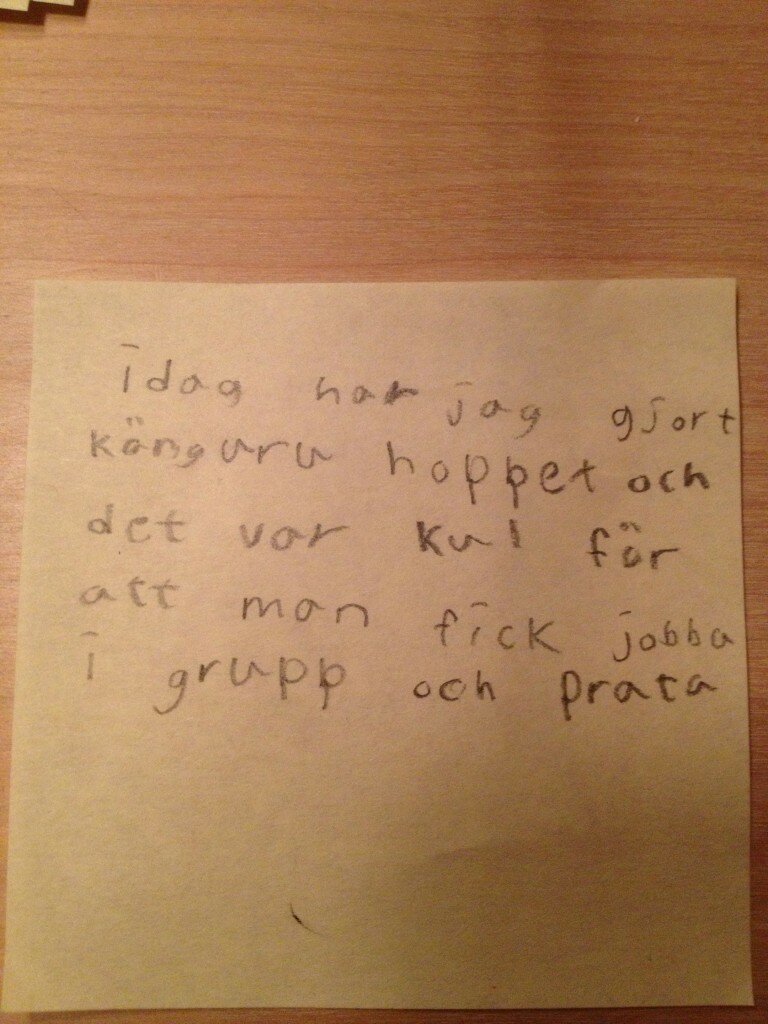 idag har jag gjort
känguru hoppet och
det var kul för
att man fick jobba
i grupp och prata